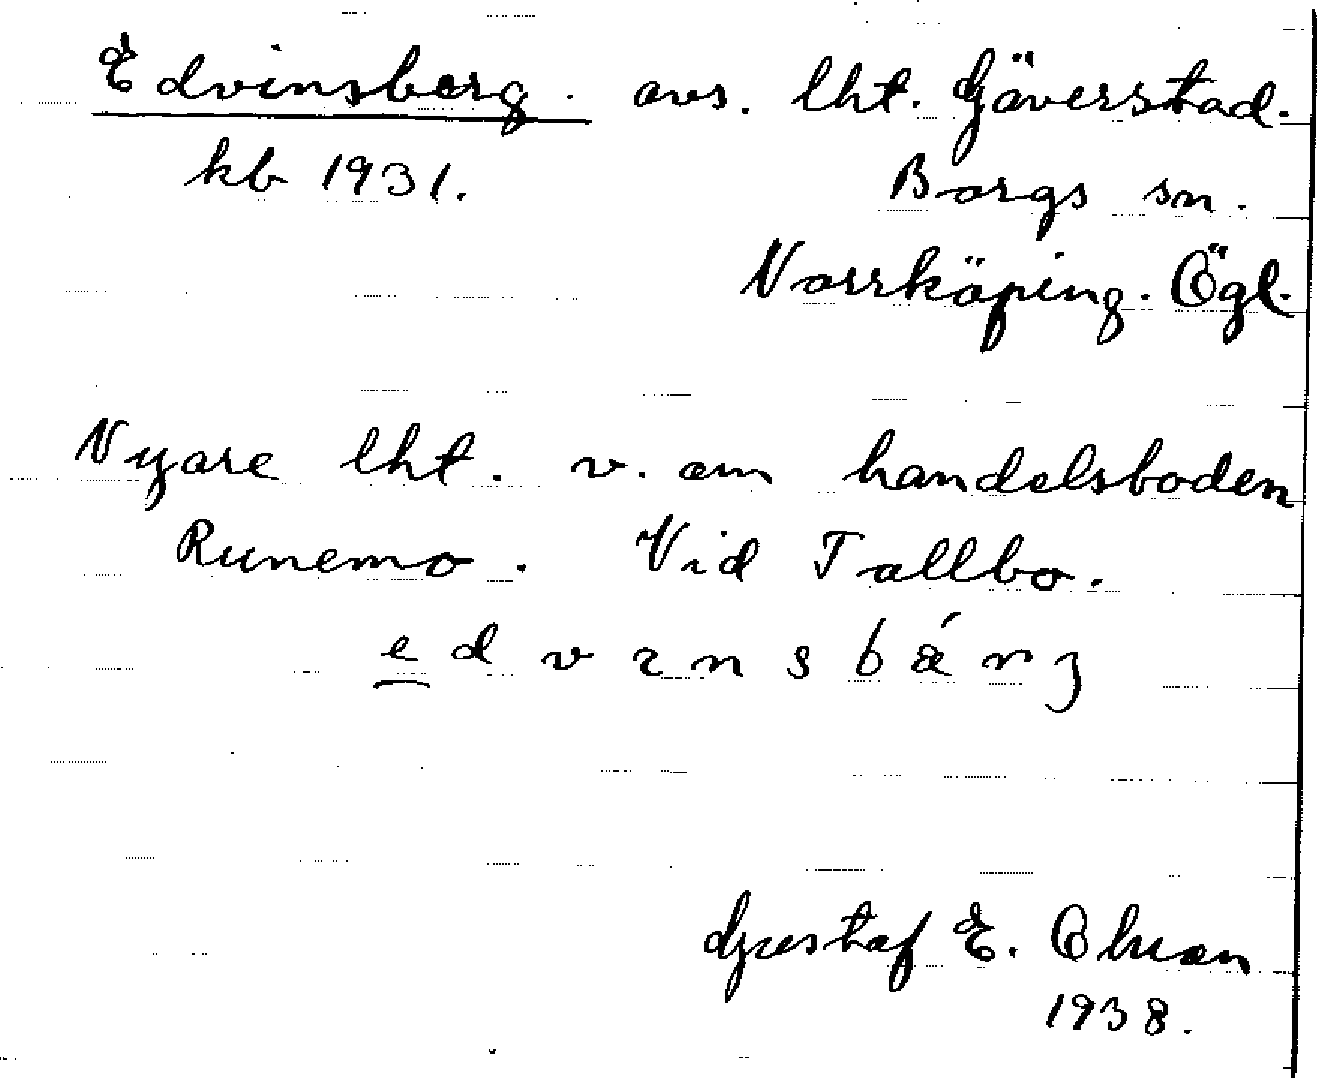 Edvinsberg. avs. lht. Gäverstad.
kb 1931. Borgs sn.
Norrköping. Ögl.
Nyare lht. v. om handelsboden
Runemo. Vid Tallbo.
e d v ı n s b ǽ r ȝ
Gustaf E.
1938.